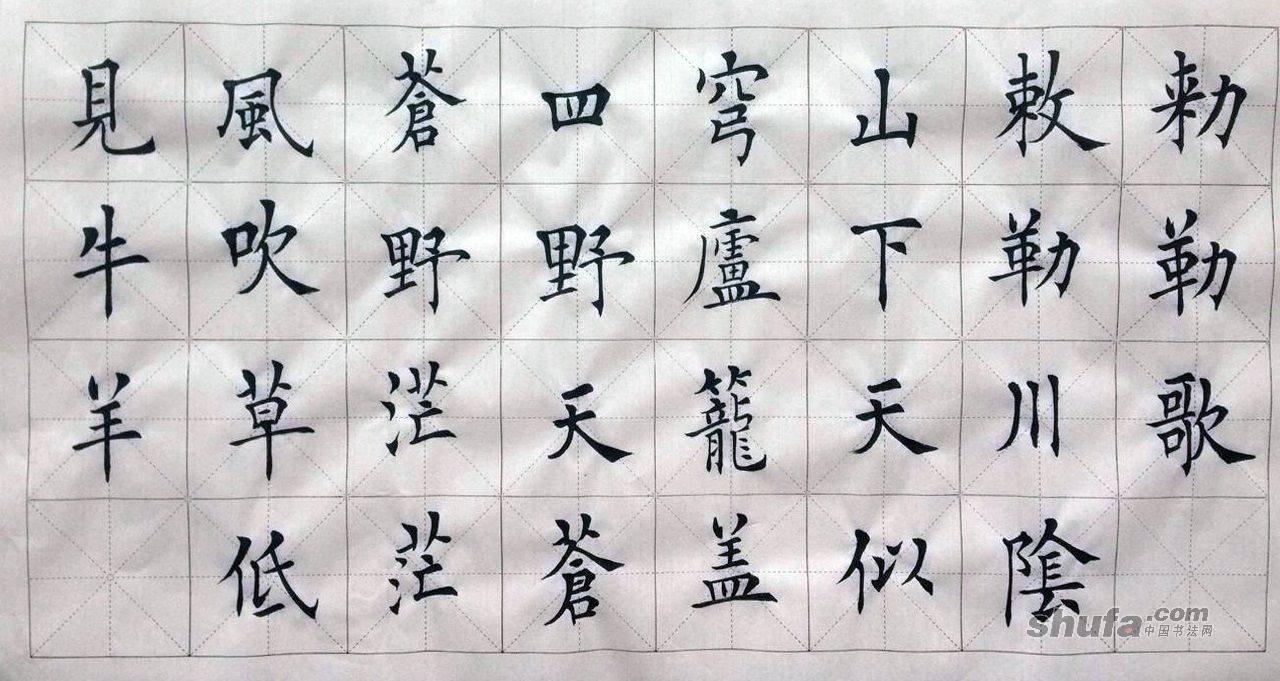 勑勒歌
敕勒川陰
山下天似
穹廬籠盖
四野天蒼
蒼野茫茫
風吹草低
見牛羊
shufa.com
中国书法网